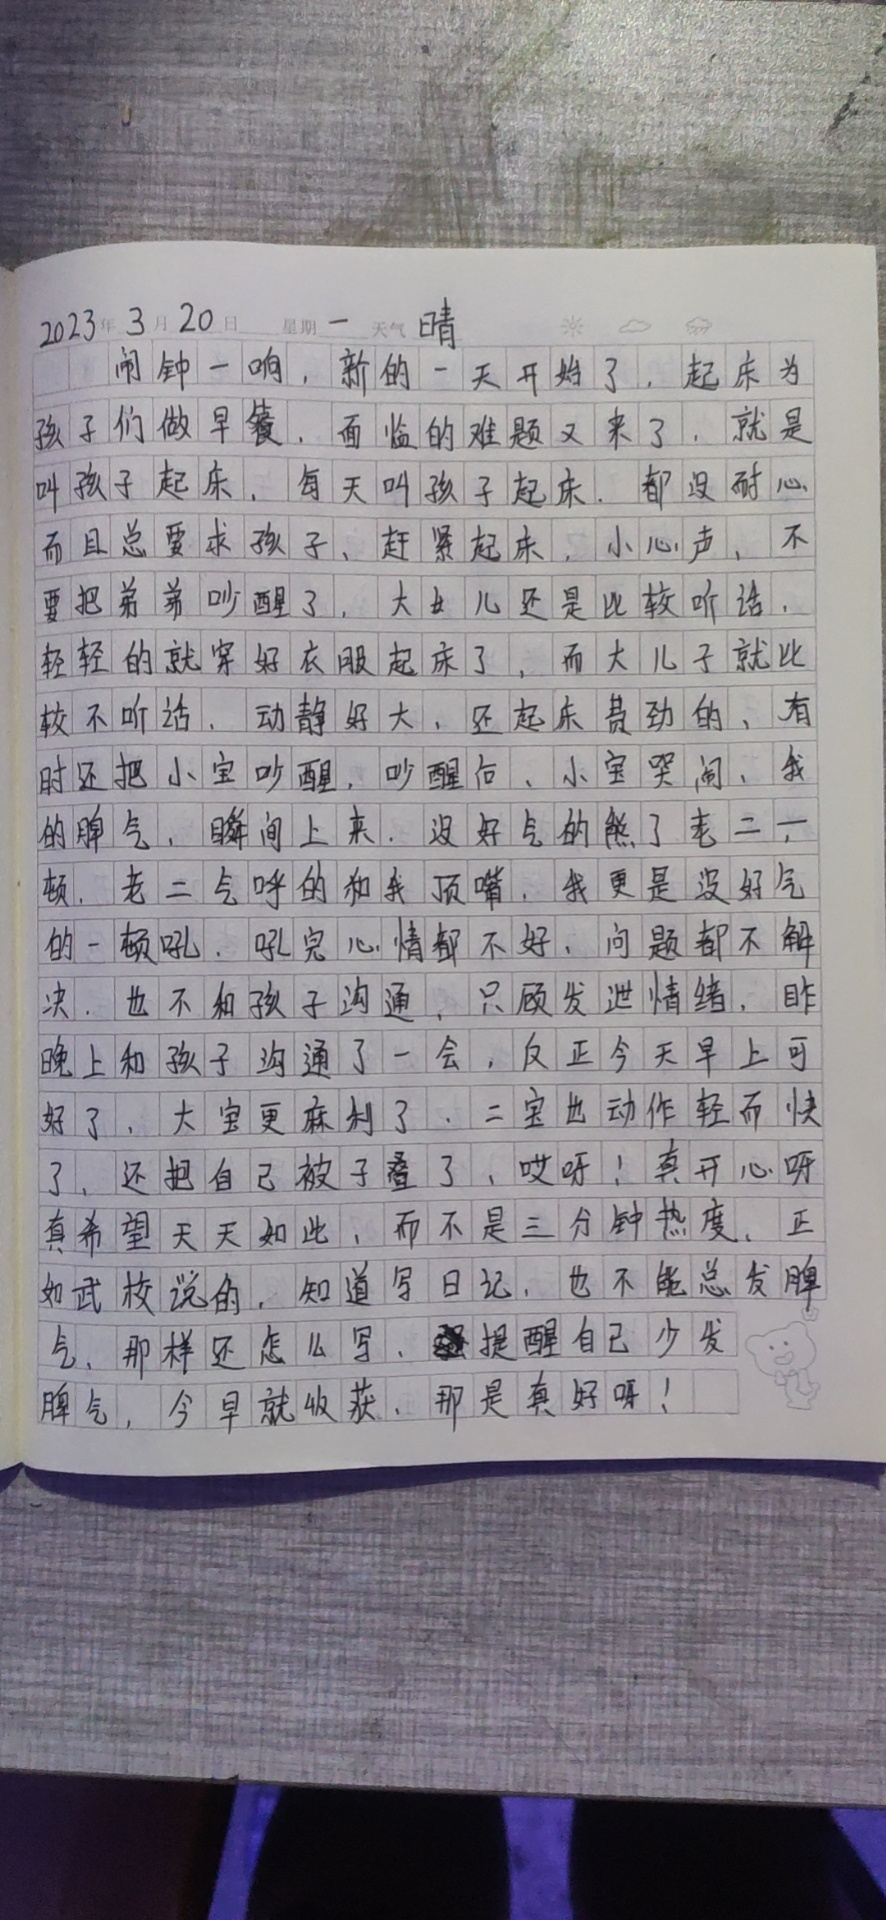 2023年3月20日 星期一 天气 晴
闹钟一响，新的一天开始了，起床为
孩子们做早餐，面临的难题又来了，就是
叫孩子起床，每天叫孩子起床，都没耐心
而且总要求孩子、赶紧起床，小心声，不
要把弟弟吵醒了，大女儿还是比较听话，
轻轻的就穿好衣服起床了，而大儿子就比
较不听话，动静好大，还起床费劲的，有
时还把小宝吵醒，吵醒后、小宝哭闹、我
的脾气，瞬间上来，没好气的熊了老二一
顿，老二气呼的和我顶嘴，我更是没好气
的一顿吼，吼完心情都不好，问题都不解
决，也不和孩子沟通，只顾发泄情绪，昨
晚上和孩子沟通了一会，反正今天早上可
好了，大宝更麻利了，二宝也动作轻而快
了，还把自己被子叠了，哎呀！真开心呀
真希望天天如此，而不是三分钟热度，正
如武校说的，知道写日记，也不能总发脾
气，那样还怎么写，提醒自己少发
脾气，今早就收获，那是真好呀！